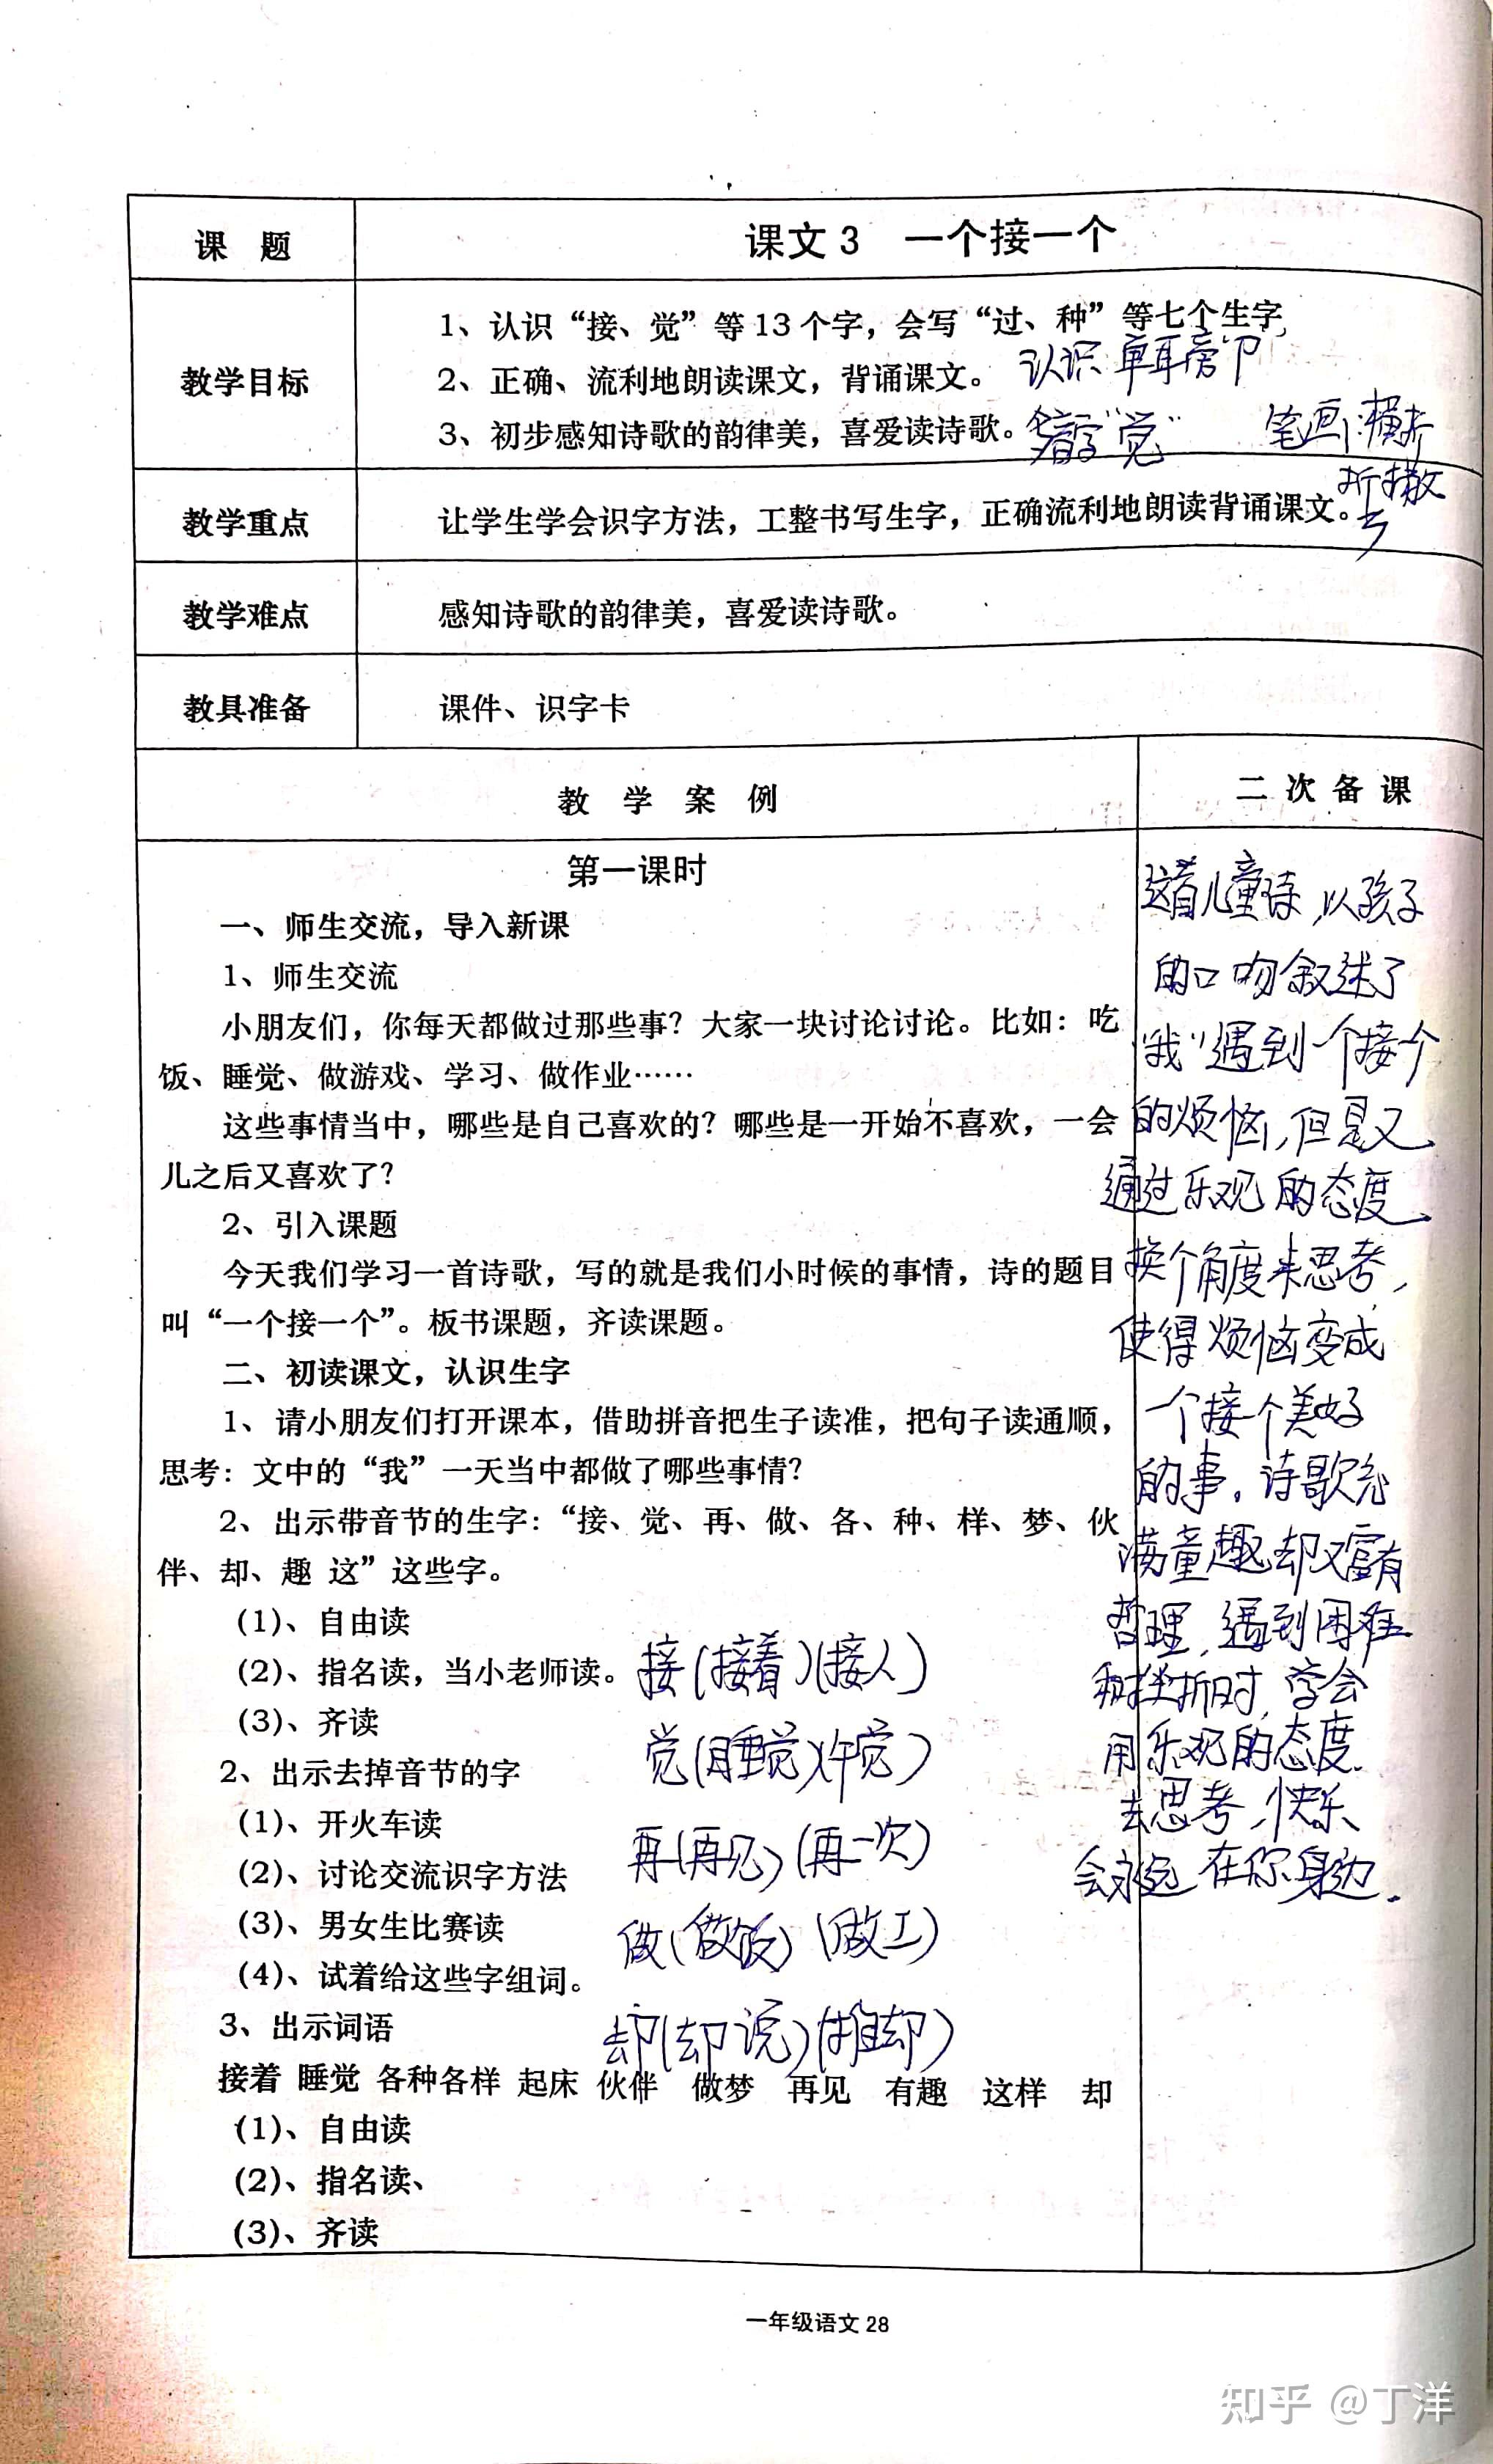 课 题
课文3 一个接一个
教学目标
1、认识“接、觉”等13个字，会写“过、种”等七个生字
2、正确、流利地朗读课文，背诵课文。 认识 单耳旁 卩
3、初步感知诗歌的韵律美，喜爱读诗歌。 多音字“觉” 笔画：横折
折撇
教学重点
让学生学会识字方法，工整书写生字，正确流利地朗读背诵课文。
教学难点
感知诗歌的韵律美，喜爱读诗歌。
教具准备
课件、识字卡
教 学 案 例
二 次 备 课
第一课时
一、师生交流，导入新课
1、师生交流
小朋友们，你每天都做过那些事？大家一块讨论讨论。比如：吃
饭、睡觉、做游戏、学习、做作业……
这些事情当中，哪些是自己喜欢的？哪些是一开始不喜欢，一会
儿之后又喜欢了？
2、引入课题
今天我们学习一首诗歌，写的就是我们小时候的事情，诗的题目
叫“一个接一个”。板书课题，齐读课题。
二、初读课文，认识生字
1、请小朋友们打开课本，借助拼音把生子读准，把句子读通顺，
思考：文中的“我”一天当中都做了哪些事情？
2、出示带音节的生字：“接、觉、再、做、各、种、样、梦、伙
伴、却、趣 这”这些字。
(1)、自由读
(2)、指名读，当小老师读。
(3)、齐读
2、出示去掉音节的字
(1)、开火车读
(2)、讨论交流识字方法
(3)、男女生比赛读
(4)、试着给这些字组词。
接(接着)(接人)
觉(睡觉)(午觉)
再(再见)(再一次)
做(做饭)(做工)
却(却说)(推却)
3、出示词语
接着 睡觉 各种各样 起床 伙伴 做梦 再见 有趣 这样 却
(1)、自由读
(2)、指名读、
(3)、齐读
这首儿童诗，以孩子
的口吻叙述了
“我”遇到一个接一个
的烦恼，但是又
通过乐观的态度、
换个角度来思考，
使得烦恼变成
一个接一个美好
的事。诗歌充
满童趣却又富有
哲理，遇到困难
和挫折时，学会
用乐观的态度
去思考，快乐
会永远在你身边.
一年级语文 28
知乎 @丁洋